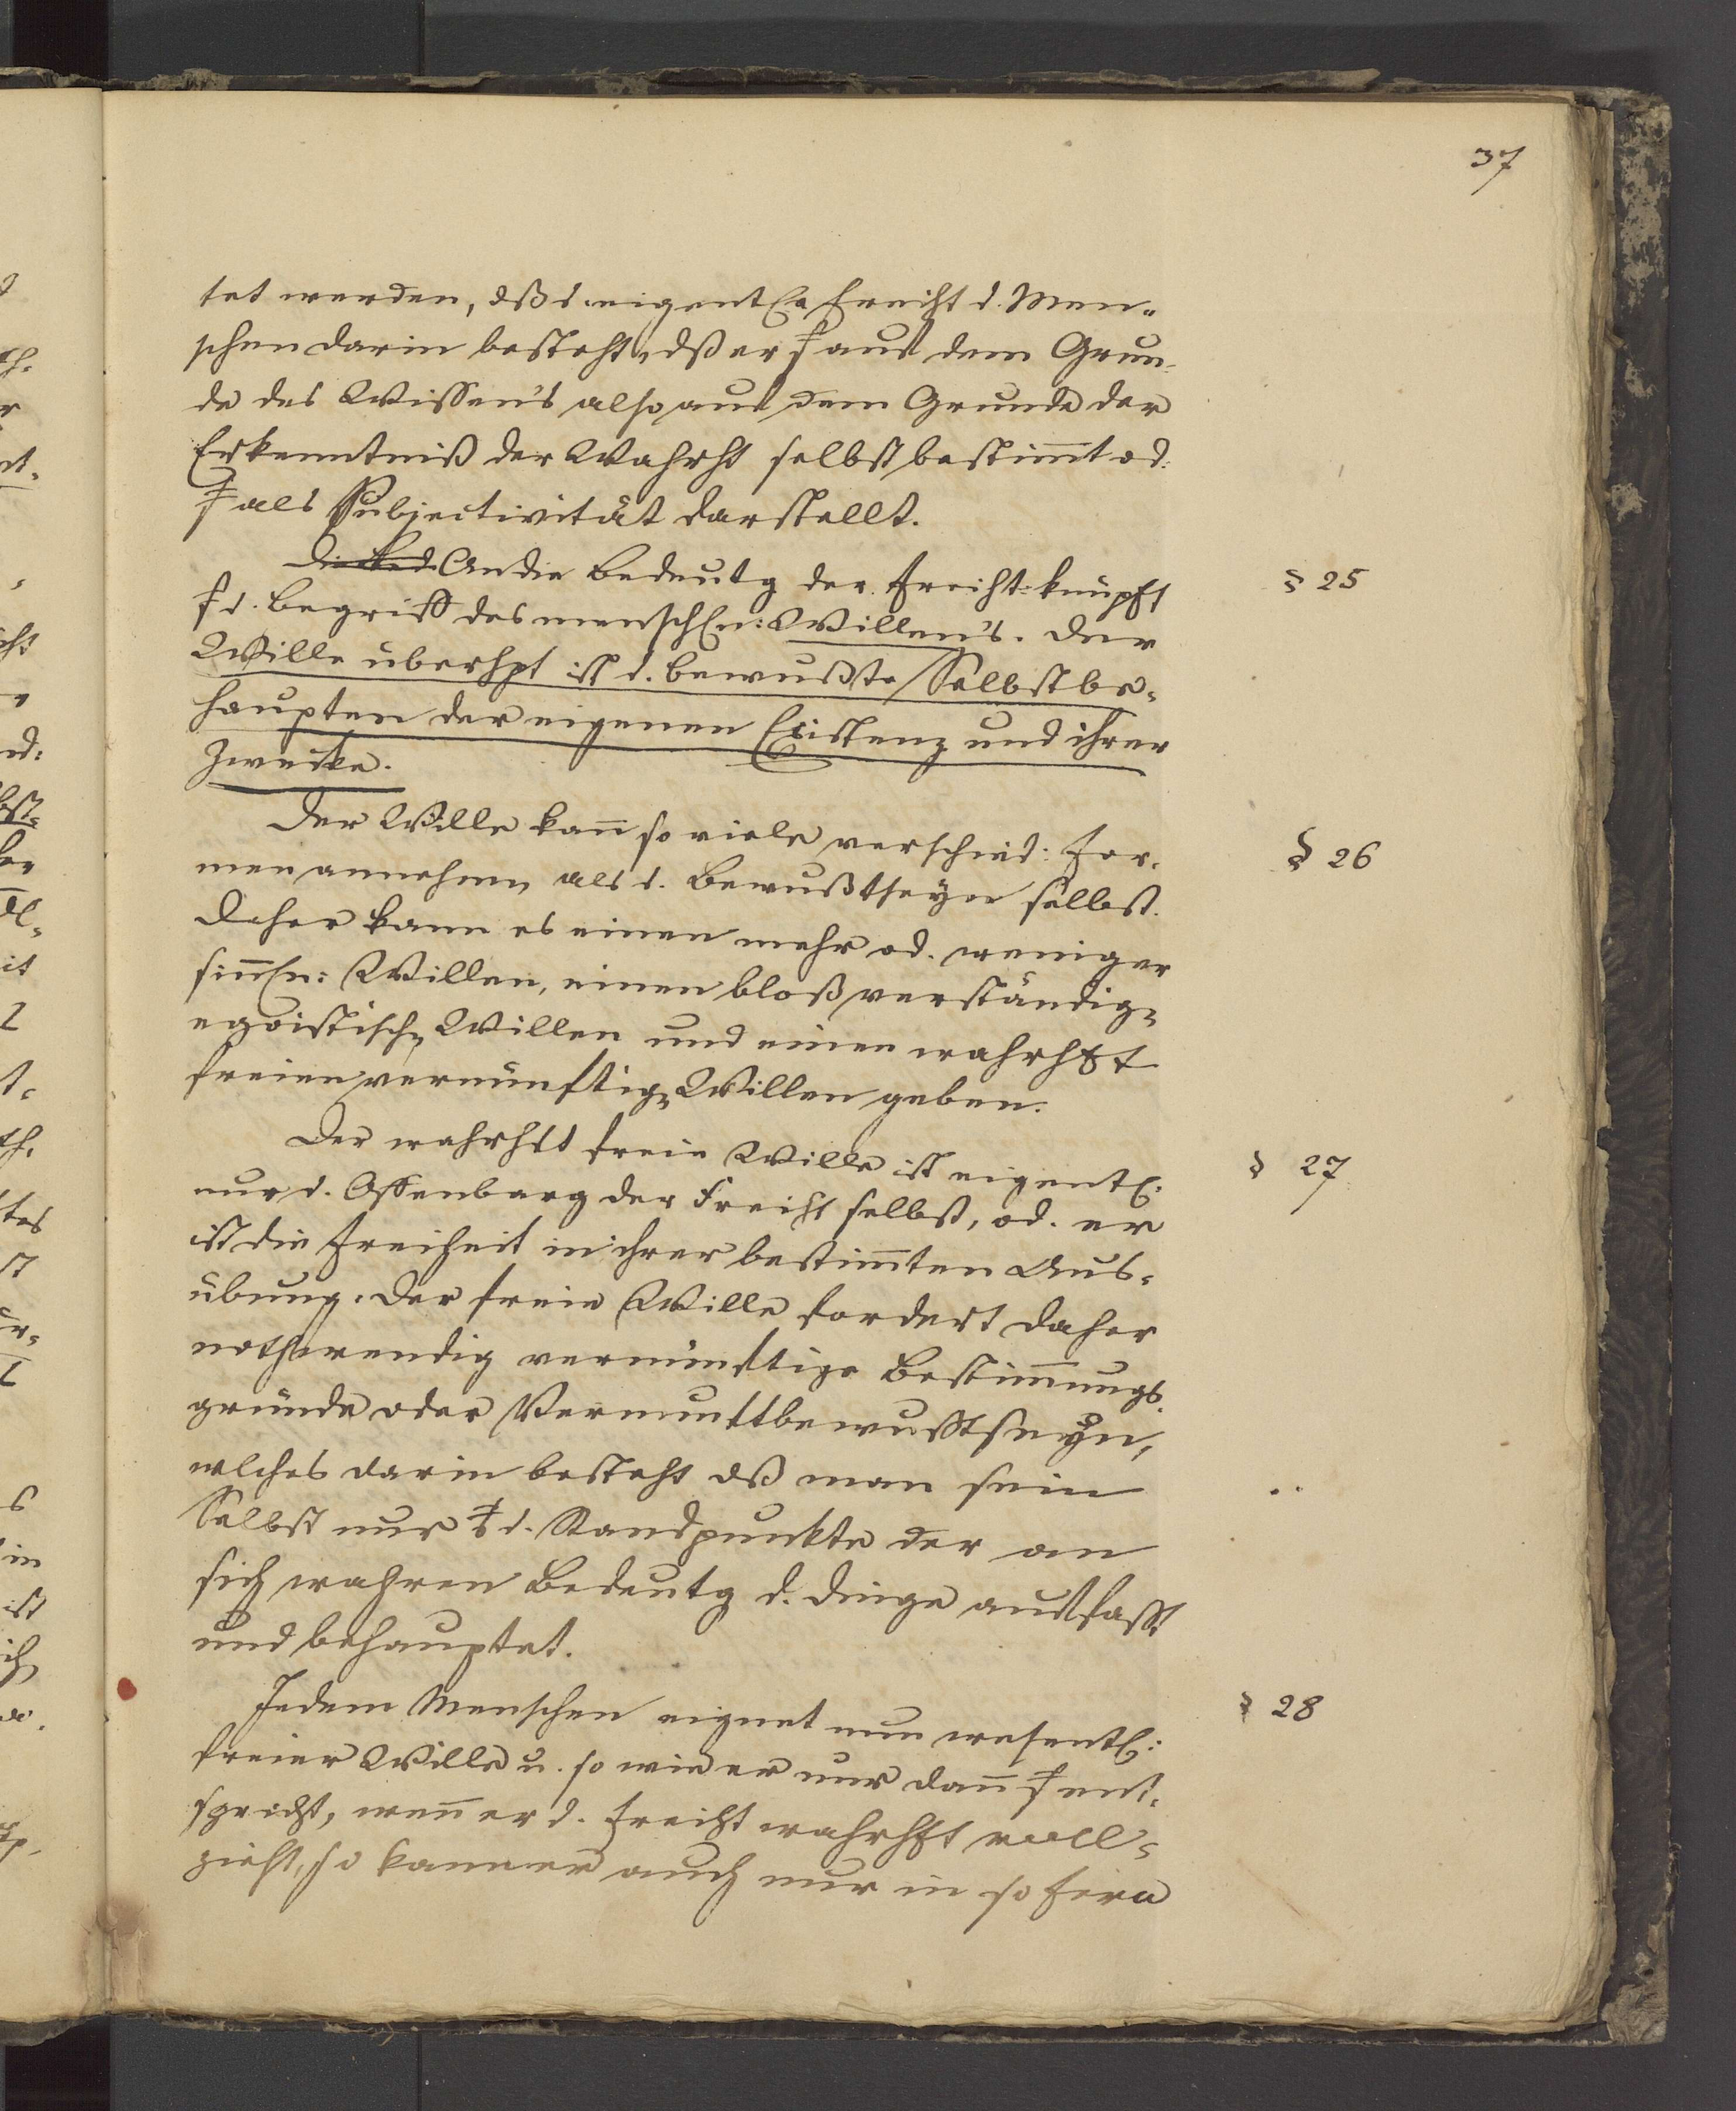 37
tet werden, dß d. eigentl. Freiht d. Men-
schen darin besteht, dß er s. aus dem Grun-
de des Wissen's also aus dem Grunde der
Erkenntniß der Wahrht selbst bestim̄t od.
s. als Subjectivität darstellt.
An die Bedeutg der Freiht knüpft
§ 25
s. d. Begriff des menschln: Willen's. Der
Wille überhpt ist d. bewußte Selbstbe-
haupten der eigenen Existenz und ihrer
Zwecke.
Der Wille kan̄ so viele verschied: For-
§ 26
men annehmen als d. Bewußtseyn selbst.
Daher kann es einen mehr od. weniger
sin̄ln: Willen, einen bloß verständig,
egoistisch Willen und einen wahrhft
freien vernünftig Willen geben.
Der wahrhft freie Wille ist eigentl:
§ 27
nur d. Offenbarg der Freiht selbst, od. er
ist die Freiheit in ihrer bestim̄ten Aus-
übung. Der freie Wille fordert daher
nothwendig vernünftige Bestim̄ungs-
gründe oder Vernunftbewußtseyn,
welches darin besteht dß man sein
Selbst nur d. Standpunkte der an
sich wahren Bedeutg d. Dinge auffaßt
und behauptet.
Jedem Menschen eignet nun wesentl:
§ 28
freier Wille u. so wie er nur dan̄ s. ent-
spricht, wen̄ er d. Freiht wahrhft voll-
zieht, so kann er auch nur in so fern